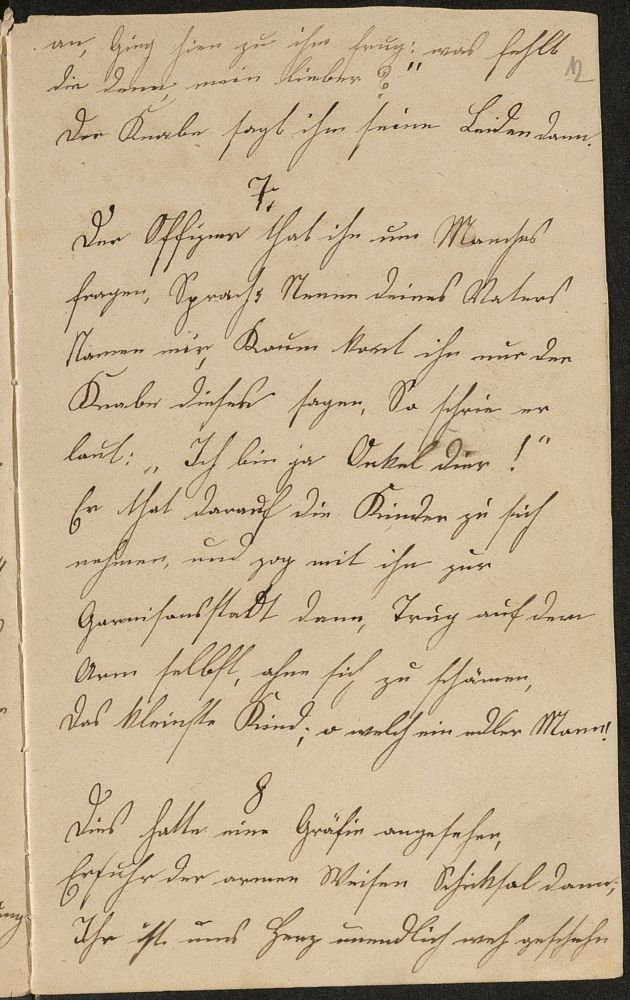 an, Ging hin zu ihm frug: was fehlt
12
dir denn, mein lieber?"
Der Knabe sagt ihm seine Leiden dann.
7.
Der Offizier that ihn um Manches
fragen, Sprach: Nenne deines Vaters
Namen mir, Kaum kont ihn nur der
Knabe diesen sagen, So schrie er
laut: „Ich bin ja Onkel dier!"
Er that darauf die Kinder zu sich
nehmen, und zog mit ihn zur
Garnisonsstadt dann, Trug auf dem
Arm selbst, ohne sich zu schämen,
das kleinste Kind; o welch ein edler Mann!
8
Dies hatte eine Gräfin angesehen,
Erfuhr der armen Weisen Schicksal dann;
Ihr ist ums Herz unendlich weh geschehn